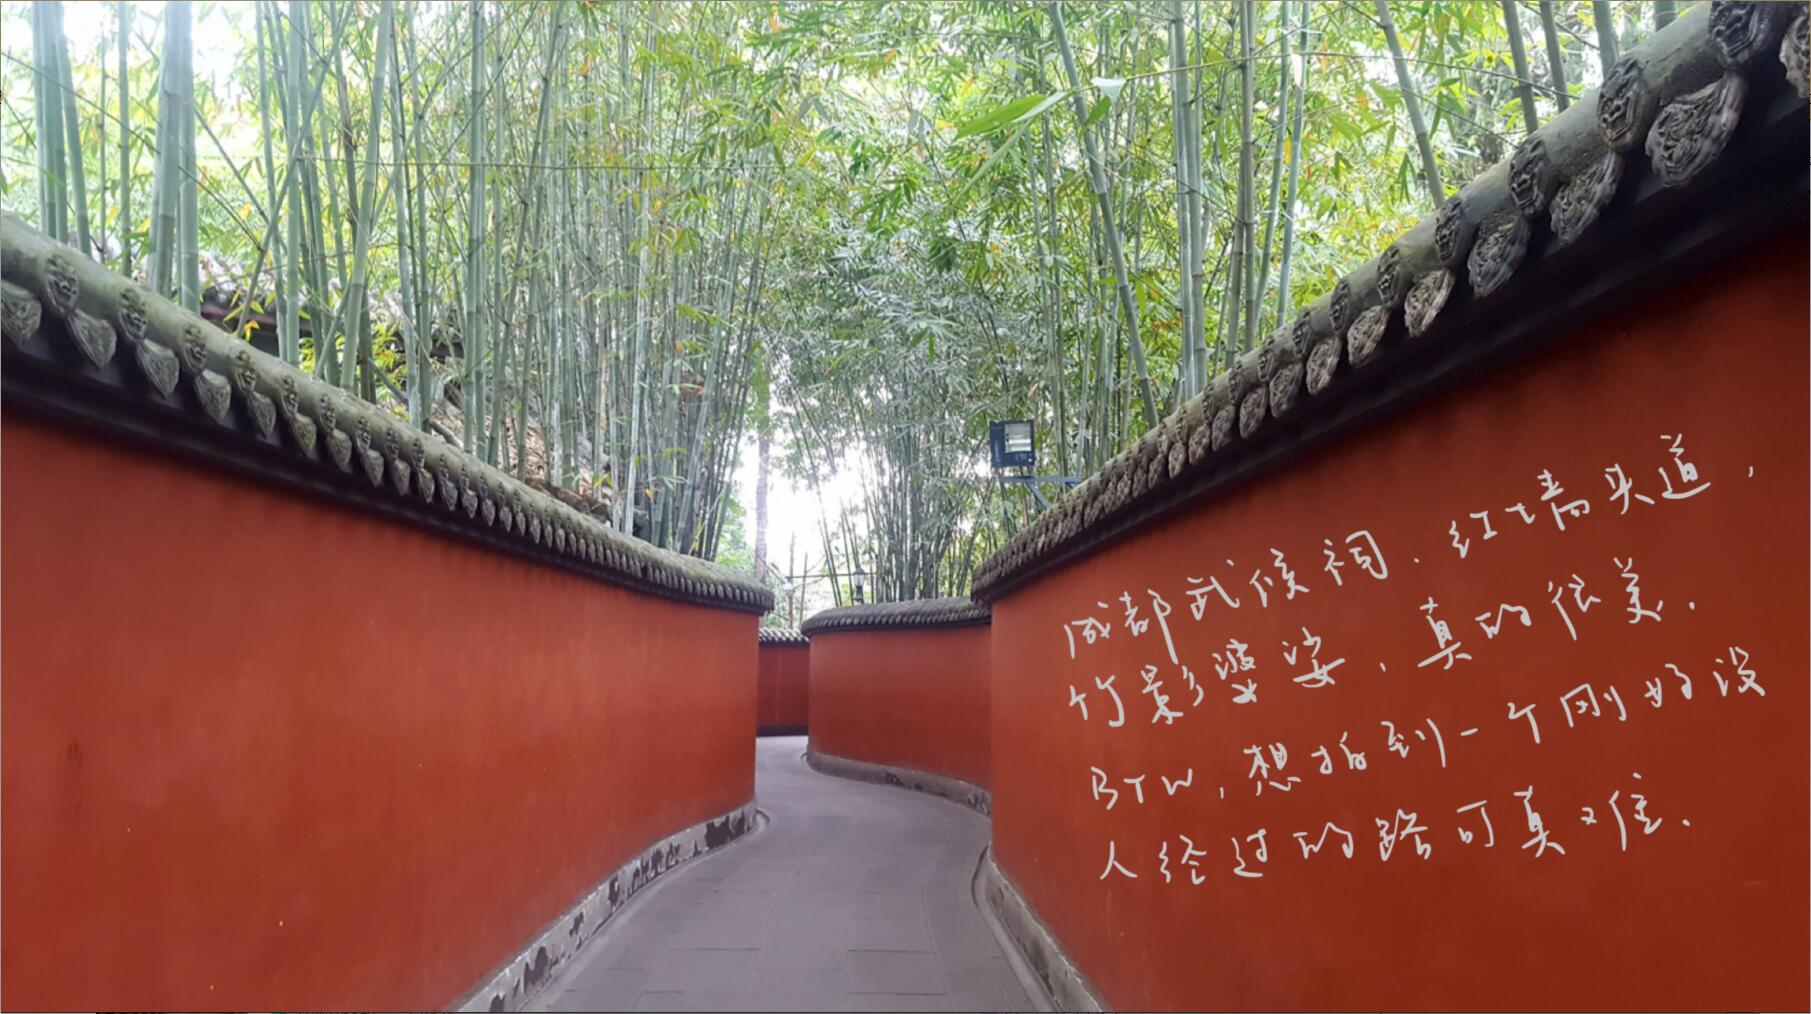 成都武侯祠.红墙夹道,
竹影婆娑,真的很美.
BTW,想拍到一个刚好没
人经过的路可真难.